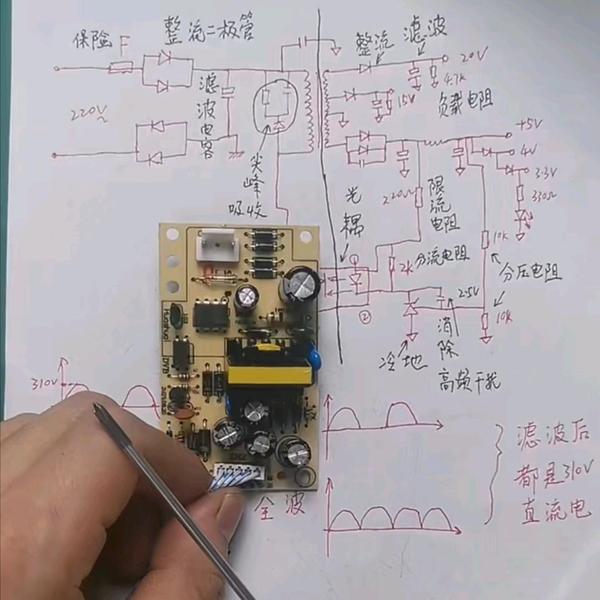 保险F
整流二极管
220V~
滤波电容
尖峰吸收
整流
滤波
20V
4.7k
负载电阻
15V
+5V
4V
3.3V
330Ω
光耦
220Ω
限流电阻
分流电阻
2k
10k
分压电阻
10k
2.5V
①
②
冷地
消除
高频干扰
310V
全波
滤波后
都是310V
直流电